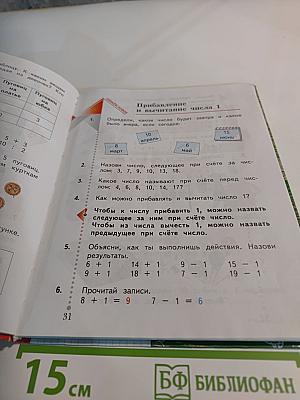 Пуговиц на платье
Пуговиц на юбке
3
5 + 3
− 2
5 пуговиц.
курткам
Прибавление
и вычитание числа 1
1. Определи, какое число будет завтра и какое
было вчера, если сегодня:
8 март
10 апрель
6 май
15 июнь
2. Назови число, следующее при счёте за чис-
лом: 3, 7, 9, 10, 13, 18.
3. Какое число называют при счёте перед чис-
лом: 4, 6, 8, 10, 14, 17?
4. Как можно прибавлять и вычитать число 1?
Чтобы к числу прибавить 1, можно назвать
следующее за ним при счёте число.
Чтобы из числа вычесть 1, можно назвать
предыдущее при счёте число.
5. Объясни, как ты выполнишь действия. Назови
результаты.
6 + 1 14 + 1 9 − 1 15 − 1
9 + 1 18 + 1 7 − 1 19 − 1
6. Прочитай записи.
8 + 1 = 9 7 − 1 = 6
31
15 см
БФ БИБЛИОФАН